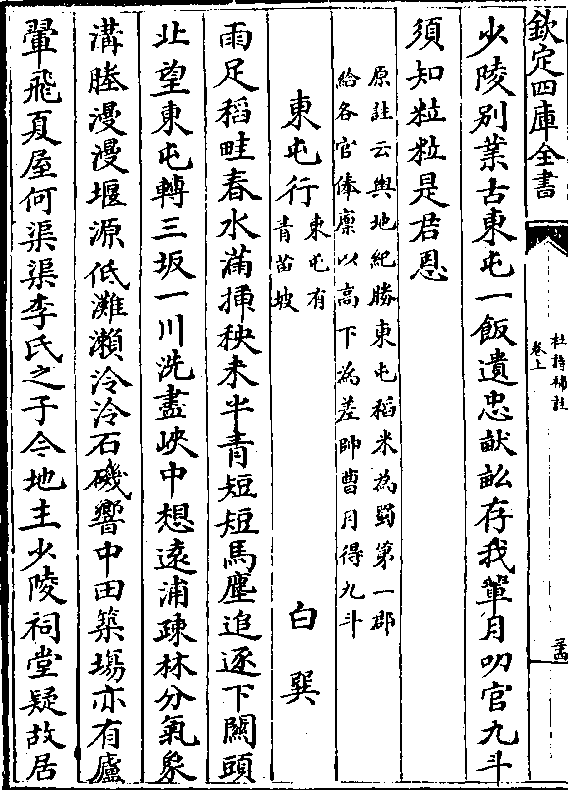 欽定四庫全書
杜詩補註
卷上
少陵别業古東屯一飯遺忠畎畝存我輩月叨官九斗
須知粒粒是君恩
原註云輿地紀勝東屯稻米為蜀第一郡
給各官俸廩以高下為差帥曹月得九斗
東屯行
東屯有
青苗坡
白巽
雨足稻畦春水滿揷秧未半青短短馬塵追逐下關頭
北望東屯轉三坂一川洗盡峽中想逺浦疎林分氣象
溝塍漫漫堰源低灘瀬泠泠石磯響中田築塲亦有廬
翬飛夏屋何渠渠李氏之子今地主少陵祠堂疑故居